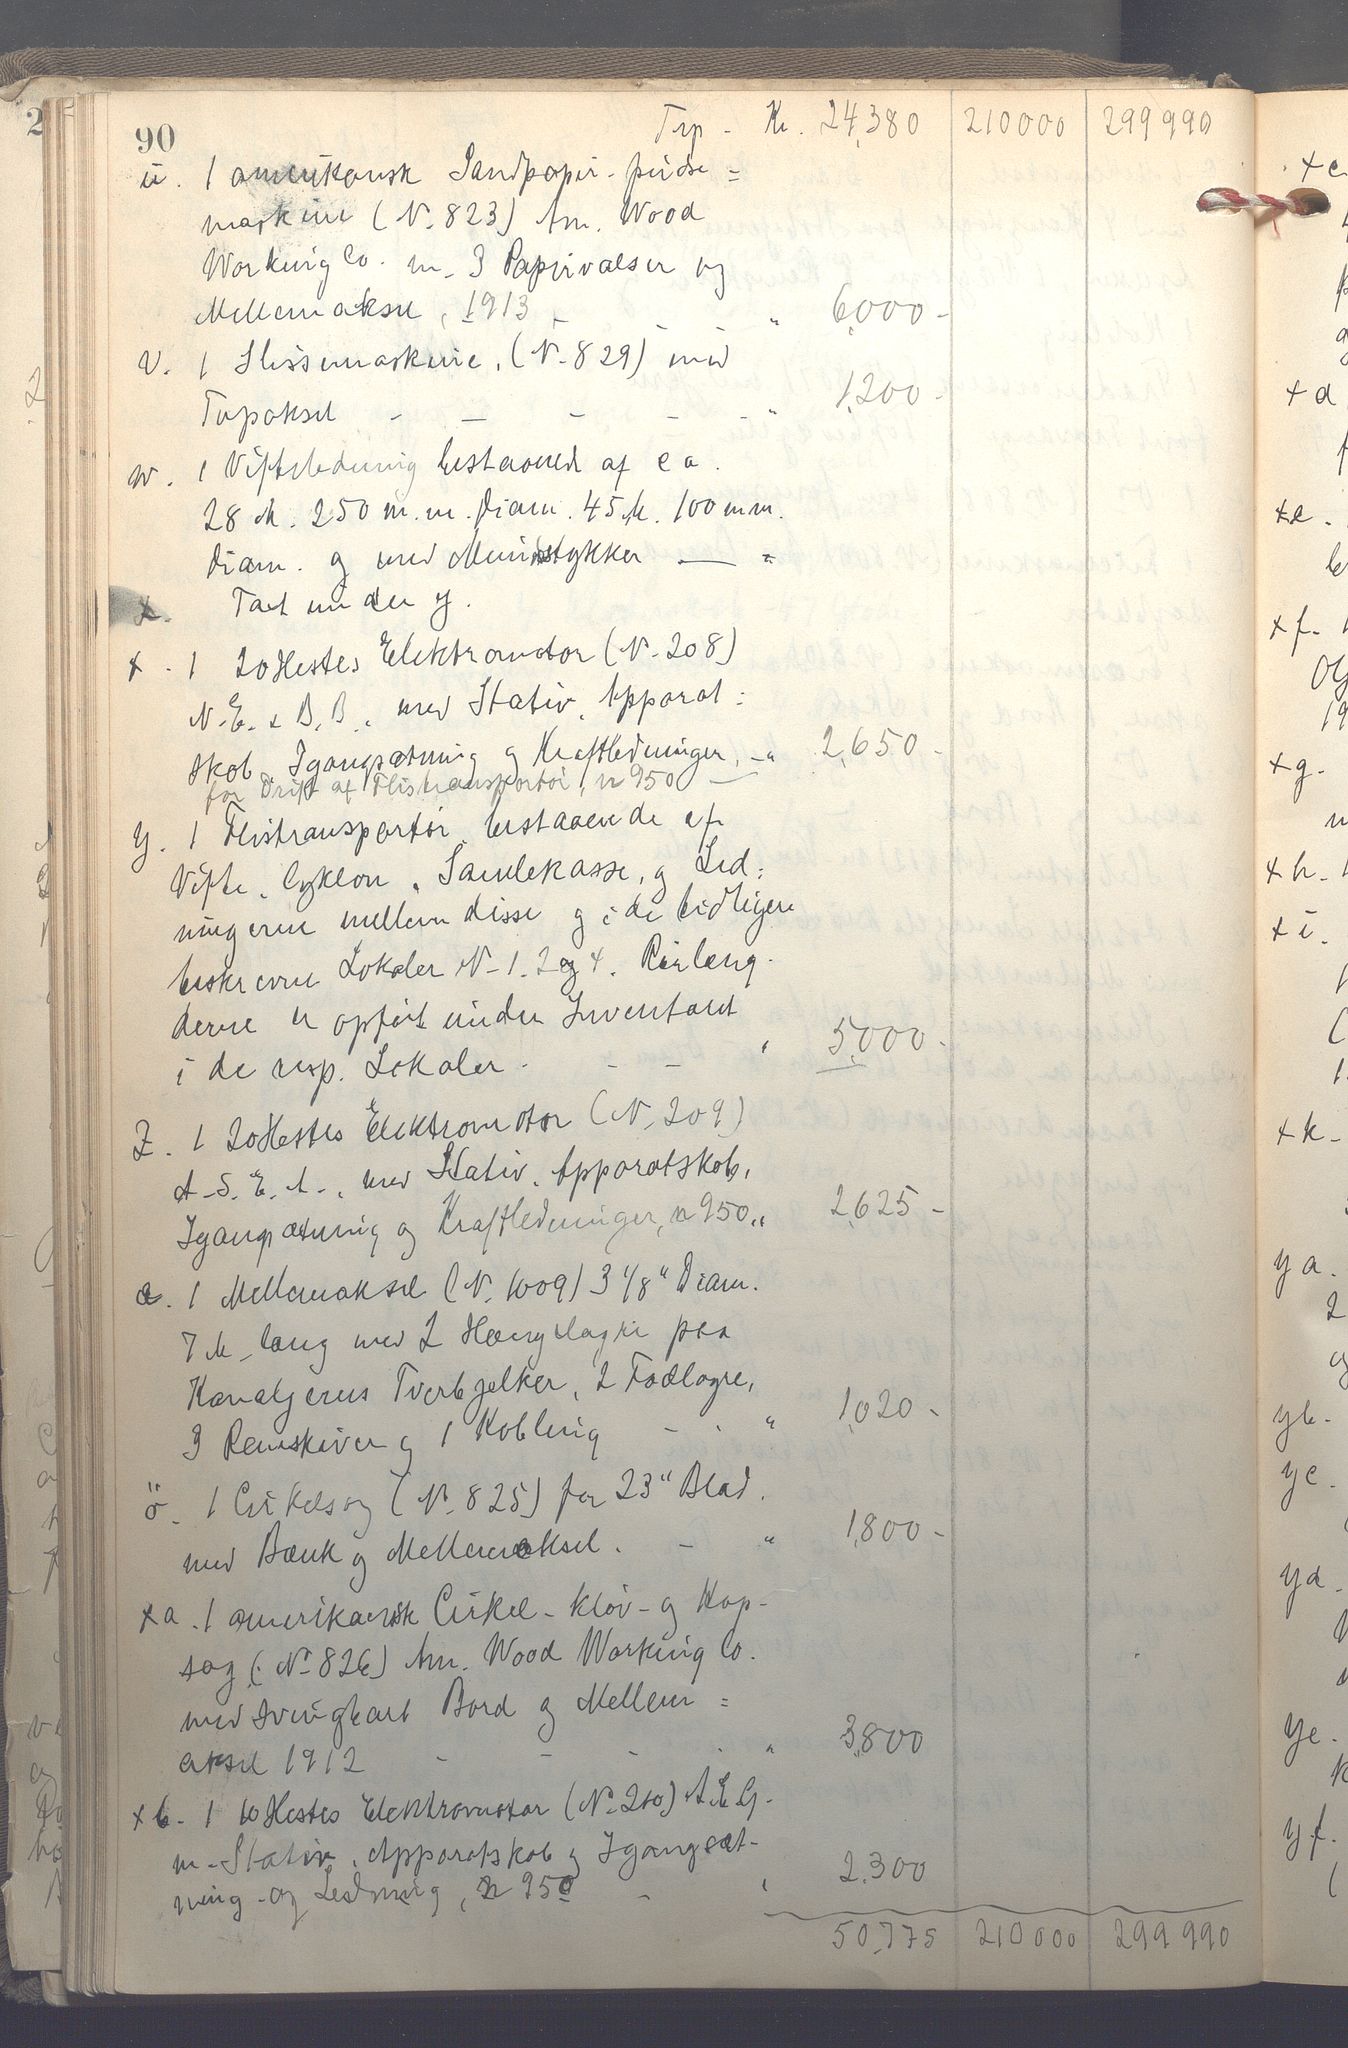 90 Trp - Kr. 24,380 210000 299990
u. 1 amerikansk Sandpapir-pudse=
maskine (N. 823) Am. Wood
Working Co. m. 3 Papirvalser og
Mellemaksel, 1913 - - - " 6,000 -
v. 1 Slissemaskine, (N. 829) med
Topaksel - - - - - " 1,200 -
w. 1 Vifteledning bestaaende af ca.
28 M. 250 m.m. Diam. 45 M. 100 mm.
Diam. og med Mundstykker — "
x. Tat under y.
x. 1 20 Hestes Elektromotor (N. 208)
N.E. & B.B. med Stativ, Apparat=
skab, Igangsætning og Kraftledninger, - " 2,650 -
for Drift af Flistransportør, n 950 —
y. 1 Flistransportør bestaaende af
Vifte, Cyklon, Samlekasse, og Led=
ningerne mellem disse og i de tidligere
beskrevne Lokaler N. 1. 2 og 4. Rørleng-
derne er opført under Inventaret
i de resp. Lokaler. - - " 5,000 -
z. 1 20 Hestes Elektromotor (N. 209)
A.S.E.A., med Stativ, Apparatskab,
Igangsætning og Kraftledninger, n 950 " 2,625 -
æ. 1 Mellemaksel (N. 1009) 3 1/8" Diam.
7 M. lang med 2 Hænglagre paa
Tverbjelker, 2 Fodlagre,
3 Remskiver og 1 Kobling - - " 1,020 -
ö. 1 Cirkelsag (N. 825) for 23" Blad.
med Bænk og Mellemaksel. - " 1,800 -
xa. 1 amerikansk Cirkel-kløv- og Kap-
sag (N. 826) Am. Wood Working Co.
med svingbart Bord og Mellem=
aksel 1912 - - - " 3,800
xb. 1 10 Hestes Elektromotor (N. 210) A.E.G.
m. Stativ, Apparatskab og Igangsæt-
ning og Ledning, n 950 - " 2,300
50,775 210000 299990